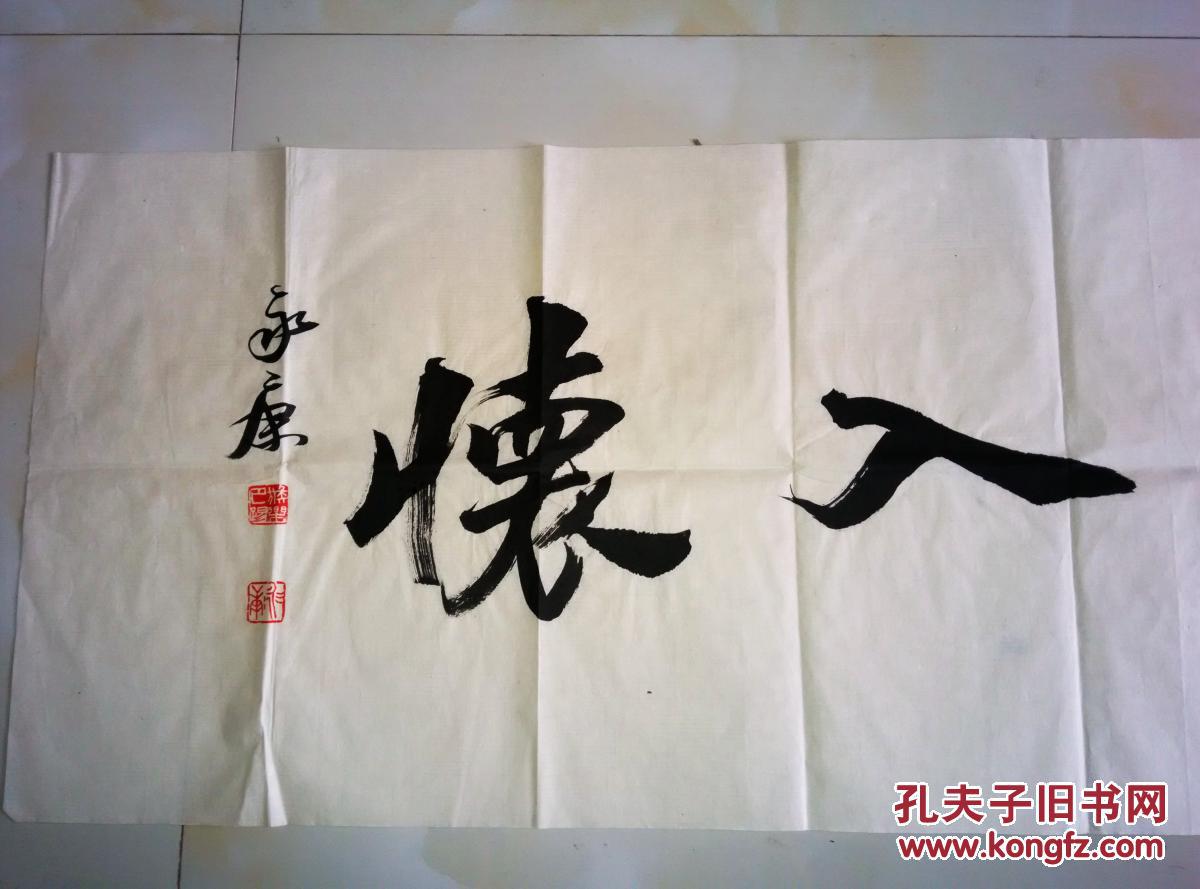 入懷
永康
孔夫子旧书网
www.kongfz.com